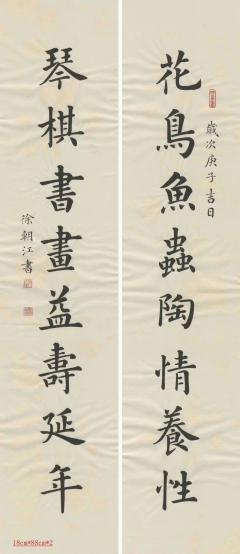 花鳥魚蟲陶情養性
歲次庚子吉日
琴棋書畫益壽延年
徐朝江書
18cm*88cm*2